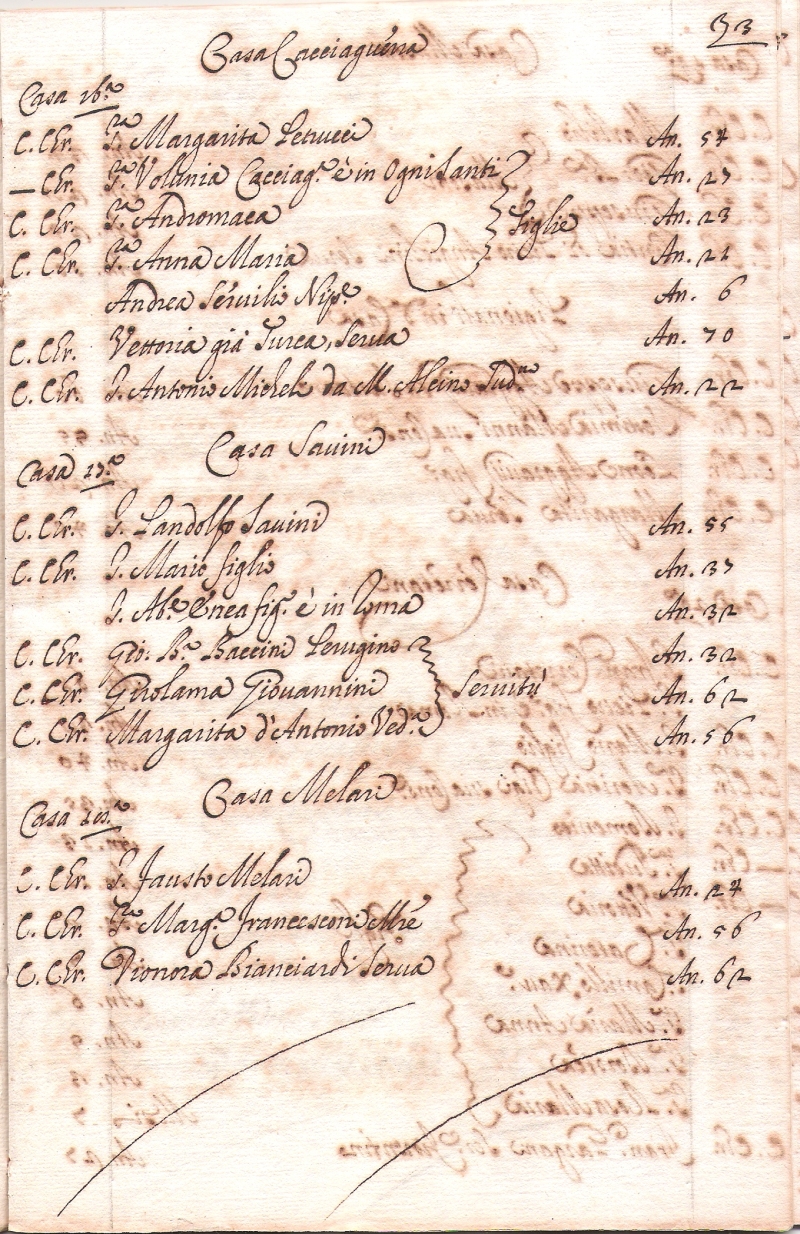 33
Casa Cacciaguerra
Casa 16.ª
C. Chr. S.ra Margarita Petrucci An. 54
— Chr. S.ra Volunia Cacciag.ª è in Ogni Santi An. 27
C. Chr. S.ra Andromaca Figlie An. 23
C. Chr. S.ra Anna Maria An. 21
Andrea Servilio Nip.e An. 6
C. Chr. Vettoria già Turca, Serva An. 70
C. Chr. S. Antonio Michel da M. Alcino An. 22
Casa Savini
Casa 17.ª
C. Chr. S. Landolfo Savini An. 55
C. Chr. S. Mario figlio An. 37
S. Ab.e Enea fig.º è in Roma An. 32
C. Chr. Gio: B.ª Baccini Perugino An. 32
C. Chr. Girolama Giovannini Servitù An. 62
C. Chr. Margarita d'Antonio Ved.ª An. 56
Casa Melari
Casa 18.ª
C. Chr. S. Fausto Melari An. 24
C. Chr. S.ra Marg.ª Francesconi Mre An. 56
C. Chr. Dionora Bianciardi Serva An. 62